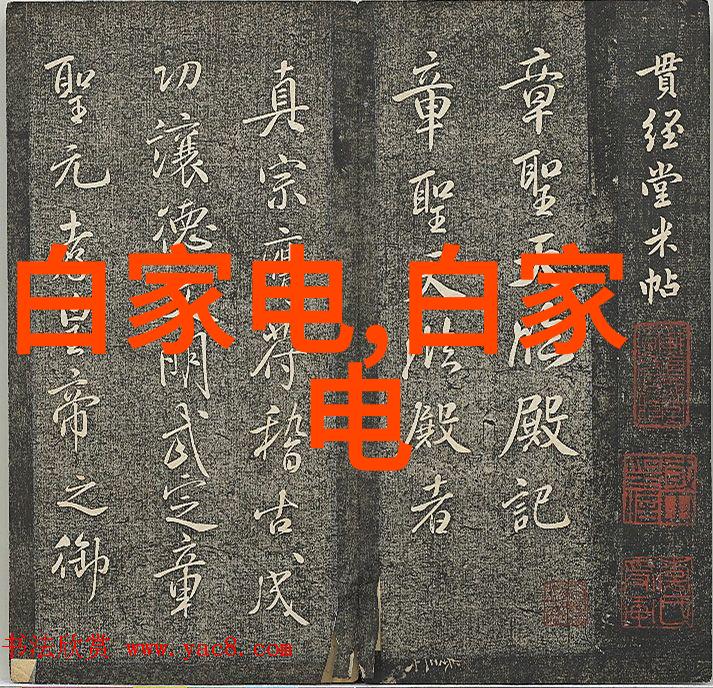 貫經堂米帖
章聖天臨殿記
章聖天臨殿者
真宗膺符稽古成
功讓德明武定章
聖元孝皇帝之御
白家电,白家
电
书法欣赏 www.yac8.com